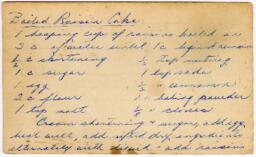 Boiled Raisin Cake
1 heaping cup of raisins boiled are
2 c. of water until 1 c. liquid remain
½ c shortening ½ tsp nutmeg
1 c sugar 1 tsp soda
1 egg ½ " cinnamon
2 c flour 1 " baking powder
1 tsp salt ½ " cloves
Cream shortening + sugar, add egg,
beat well, add sifted dry ingredients
alternately with liquid - add raisins